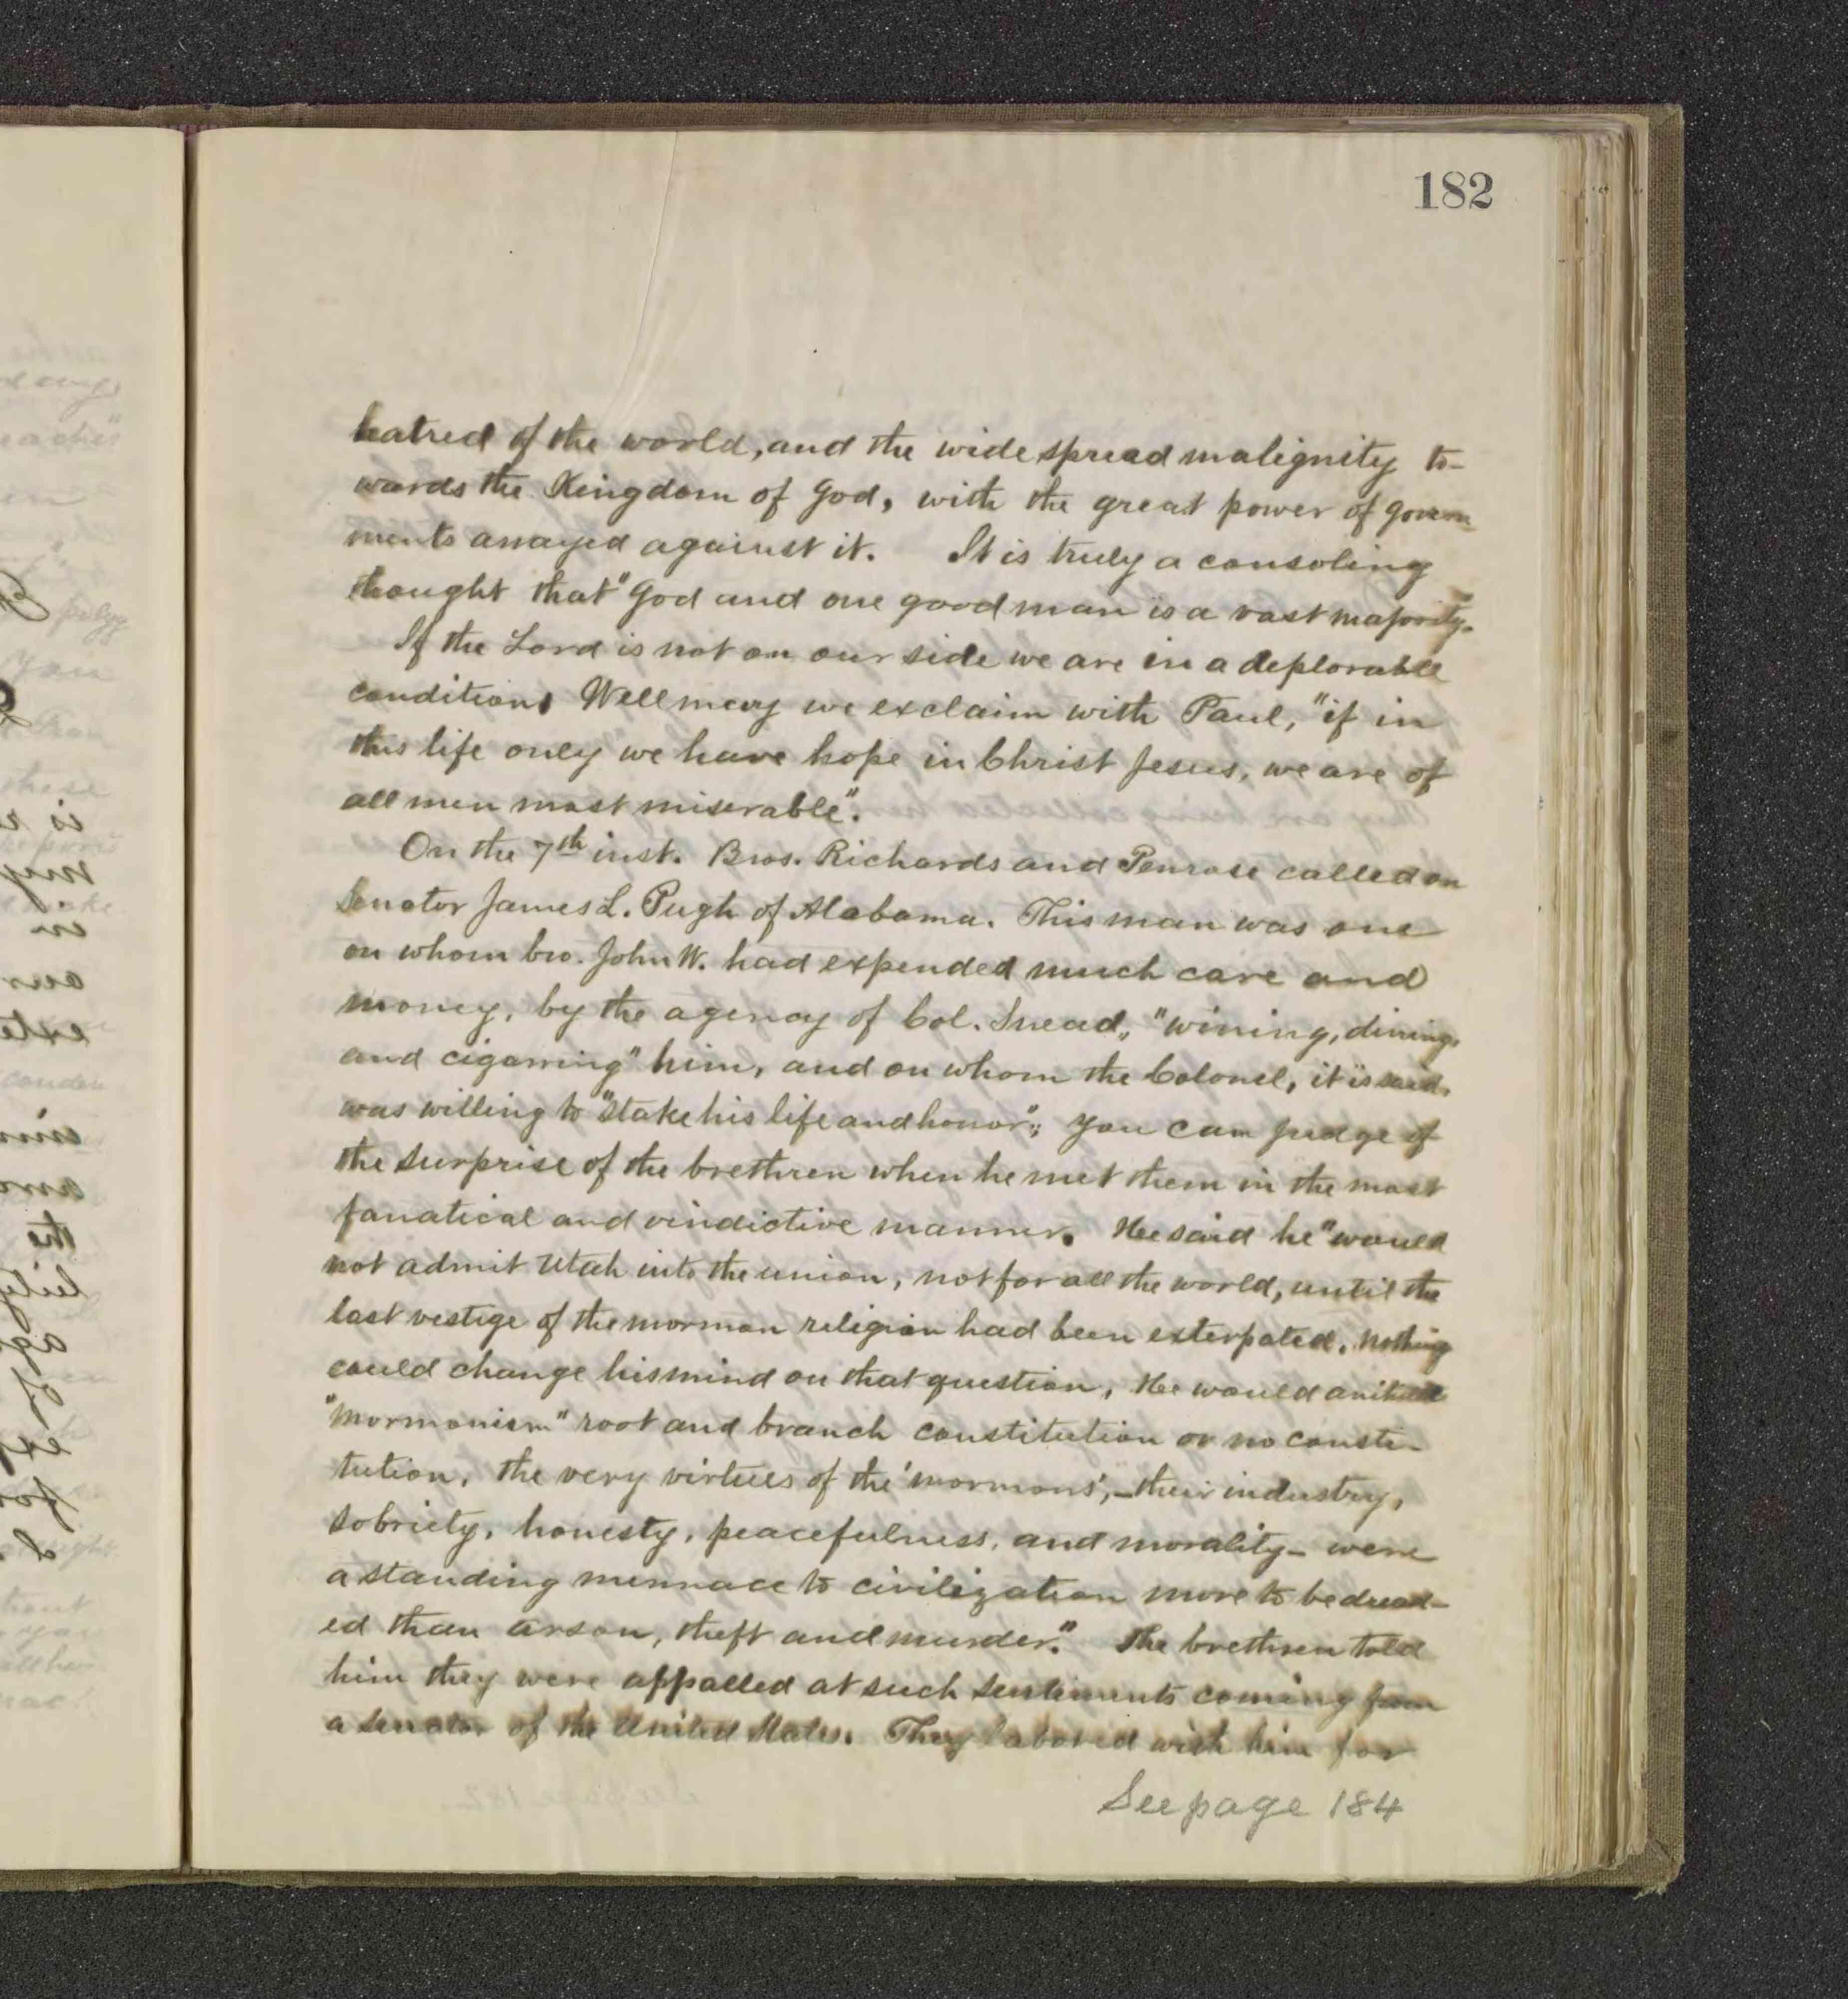 182
hatred of the world, and the wide spread malignity to-
wards the Kingdom of God, with the great power of govern
ments arrayed against it. It is truly a consoling
thought that "God and one good man is a vast majority."
If the Lord is not on our side we are in a deplorable
condition. Well may we exclaim with Paul, "if in
this life only we have hope in Christ Jesus, we are of
all men most miserable".
On the 7th inst. Bros. Richards and Penrose called on
Senator James L. Pugh of Alabama. This man was one
on whom bro. John W. had expended much care and
money, by the agency of Col. Snead, "wining, dining,
and cigarring" him, and on whom the Colonel, it is said,
was willing to "stake his life and honor"; you can judge of
the surprise of the brethren when he met them in the most
fanatical and vindictive manner. He said he "would
not admit Utah into the union, not for all the world, until the
last vestige of the mormon religion had been exterpated. nothing
could change his mind on that question, He would
"mormonism" root and branch constitution or no consti-
tution. The very virtues of the 'mormons', - their industry,
sobriety, honesty, peacefulness, and morality - were
a standing mennace to civilization more to be dread-
ed than arson, theft and murder." The brethren told
him they were appalled at such sentiments coming from
a senator of the United States. They labored with him for
See page 184